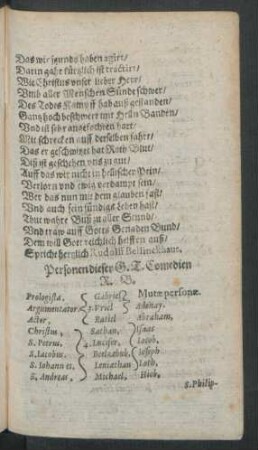 Das wir jtzunds haben agirt/
Darin gahr kürtzlich ist tractirt/
Wie Christus vnser lieber Herr/
Vmb aller Menschen Sünde schwer/
Des Todes Kampff hab außgestanden/
Gantz hoch beschwert mit Helln Banden/
Vnd ist sehr angefochten hart/
Mit schrecken auff derselben fahrt/
Das er geschwitzet hat Roth Blut/
Diß ist geschehen vns zu gut/
Auff das wir nicht in hellischer Pein/
Verlorn vnd ewig verdampt sein/
Wer das nun mit dem glauben fast/
Vnd auch sein sündigs Leben hast/
Thut wahre Buß zu aller Stund/
Vnd traw auff Gotts Genaden Bund/
Dem will Gott reichlich helffen auß/
Spricht herzlich Rudolff Bellinckhaus.
Personen dieser G. T. Comedien
R. B.
Prologista. Gabriel Mutæ personæ.
Argumentator. 2. Vriel Adonay.
Actor. Rafiel Abraham,
Christus, Sathan, Isaac
S. Petrus. 4. Lucifer, Iacob,
S. Iacobus. Beelzebub, Ioseph
S. Iohannes, Leuiathan Loth,
S. Andreas, Michael. Hiob,
S. Philip-